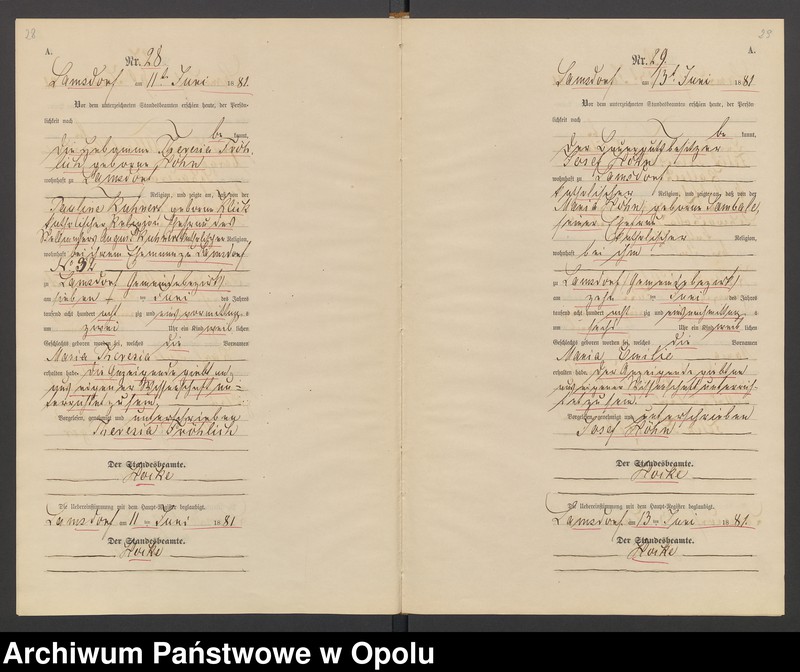 28
A.
Nr. 28
Lamsdorf am 11ten Juni 1881.
Vor dem unterzeichneten Standesbeamten erschien heute, der Persön-
lichkeit nach
be kannt,
die Hebamme Theresia Fröh-
lich geborene Höhn
wohnhaft zu Lamsdorf
Religion, und zeigte an, daß von der
Pauline Kuhnert geborene Klick
katholischer Religion Ehefrau des
August Kuhnert katholischer Religion,
wohnhaft bei ihrem Ehemann zu Lamsdorf
No 32
zu Lamsdorf Gemeindebezirk
am sieben ten Juni des Jahres
tausend acht hundert acht zig und eins Vormittags
um zwei Uhr ein Kind weib lichen
Geschlechts geboren worden sei, welches die Vornamen
Maria Theresia
erhalten habe. Die Anzeigende giebt an,
aus eigener Wissenschaft un-
terrichtet zu sein.
Vorgelesen, genehmigt und unterschrieben
Theresia Fröhlich
Der Standesbeamte.
Hocke
Die Uebereinstimmung mit dem Haupt-Register beglaubigt.
Lamsdorf am 11 ten Juni 1881
Der Standesbeamte.
Hocke
29
A.
Nr. 29
Lamsdorf am 13t Juni 1881
Vor dem unterzeichneten Standesbeamten erschien heute, der Persön-
lichkeit nach
be kannt,
der Bauergutsbesitzer
Josef Höhn
wohnhaft zu Lamsdorf
katholischer Religion, und zeigte an, daß von der
Maria Höhn, geborene Sambale,
seiner Ehefrau
katholischer Religion,
wohnhaft bei ihm
zu Lamsdorf (Gemeindebezirk)
am zehn ten Juni des Jahres
tausend acht hundert acht zig und eins
um sechs Uhr ein Kind weib lichen
Geschlechts geboren worden sei, welches die Vornamen
Maria, Emilie
erhalten habe. Der Anzeigende giebt an
aus eigener Wissenschaft unterrich-
tet zu sein.
Vorgelesen, genehmigt und unterschrieben
Josef Höhn
Der Standesbeamte.
Hocke
Die Uebereinstimmung mit dem Haupt-Register beglaubigt.
Lamsdorf am 13 ten Juni 1881.
Der Standesbeamte.
Hocke
Archiwum Państwowe w Opolu